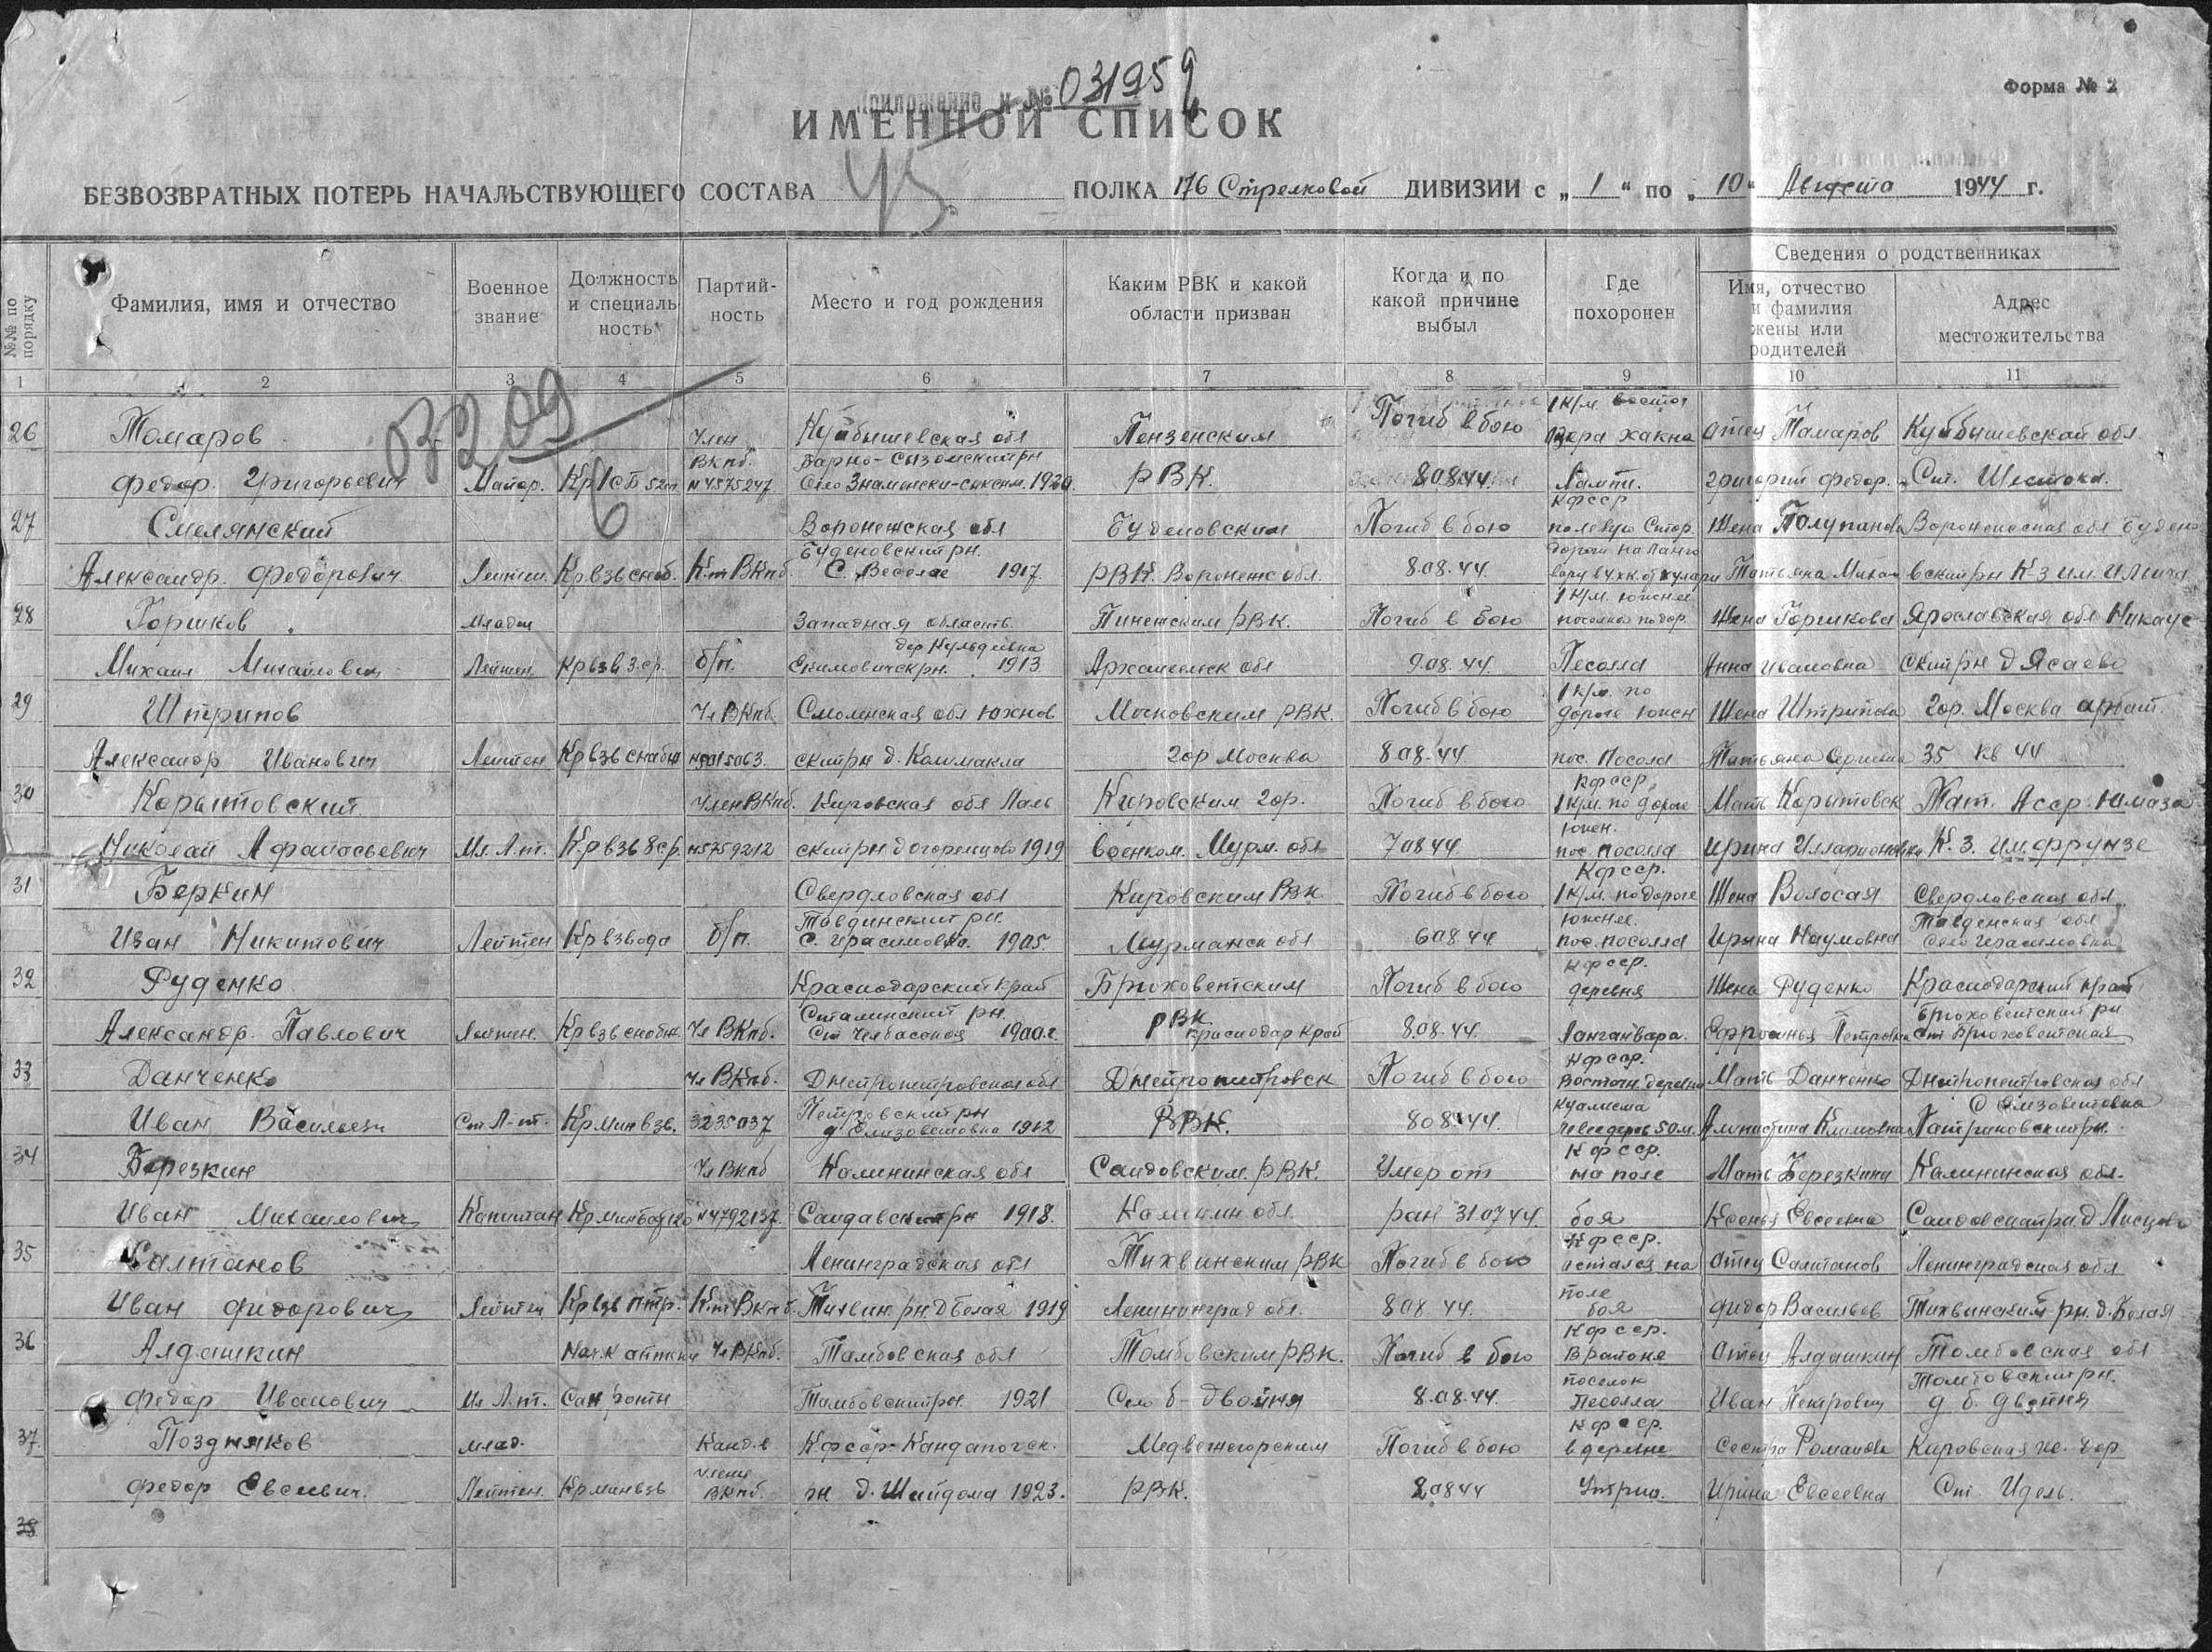 Форма № 2
Приложение к № 031959
ИМЕННОЙ СПИСОК
45
БЕЗВОЗВРАТНЫХ ПОТЕРЬ НАЧАЛЬСТВУЮЩЕГО СОСТАВА ПОЛКА 176 Стрелковой ДИВИЗИИ с „1“ по „10“ Августа 1944 г.
№№ по порядку
Фамилия, имя и отчество
Военное звание
Должность и специаль ность
Партий- ность
Место и год рождения
Каким РВК и какой области призван
Когда и по какой причине выбыл
Где похоронен
Сведения о родственниках
Имя, отчество и фамилия жены или родителей
Адрес местожительства
1 2 3 4 5 6 7 8 9 10 11
03209
26 Томаров Член Куйбышевская обл Пензенским Погиб в бою 1 к/м восточ отец Тамаров Куйбышевской обл
Федор Григорьевич Майор. ВКпб. N4575247 РВК. 8.08.44. Григорий Федор. Ст. Шестока.
27 Смелянский Воронежская обл Буденовским Погиб в бою Жена Полупанова Воронежская обл Будено
Александр Федорович Лейтен. Кр взв снаб. К-т ВКпб. Буденовский рн. С. Веселое 1917. РВК. Воронеж обл. 8.08.44. Татьяна Михай вский рн К-з им. Ильича
28 Горшков Младш Западная область Пинежским РВК. Погиб в бою 1 к/м. южнее Жена Горшкова Ярославская обл
Михаил Михайлович Лейтен. Кр взв 3 ср. б/п. Екимовичск рн. 1913 Архангельск обл 9.08.44. Песолла Анна Ивановна ский рн д Ясаево
29 Штрипов Чл ВКпб. Смоленская обл Юхнов Московским РВК. Погиб в бою 1 к/м. по дороге южн Жена Штрипова Гор. Москва Арбат.
Александр Иванович Лейтен Кр взв снабж ский рн д. Колмакла гор Москва 8.08.44 пос. Посола Татьяна Сергеевна 35 кв 44
30 Корытовский Член ВКпб. Кировская обл Лаль Кировским гор. Погиб в бою Кфсср, 1 к/м. по дороге Мать Корытовск Тат. Асср.
Николай Афанасьевич Мл. Л-т. Кр взв 8 ср. N5759212 1919 военком. Мурм. обл 7.08.44 южн. пос. Посолла Ирина Илларионовна К. З. им. Фрунзе
31 Беркин Свердловская обл Кировским РВК Погиб в бою Кфсср. 1 к/м. по дороге Жена Волосая Свердловская обл
Иван Никитович Лейтен Кр взвода б/п. Тавдинский рн. с. Герасимовка. 1905. Мурманск обл 6.08.44 южнее пос. Посолла Ирина Наумовна Тавденская обл Село Герасимовка
32 Руденко Краснодарский край Брюховетским Погиб в бою Кфсср. деревня Жена Руденко Краснодарский край
Александр Павлович Лейтен. Кр взв снабж. Чл ВКпб. Сталинский рн. Ст Челбасская 1900 г. РВК Краснодар край 8.08.44. Лангайвара. Петровна Брюховетский рн ст Брюховетская
33 Данченко Чл ВКпб. Днепропетровская обл Днепропетровск Погиб в бою Кфсср. Восточн. деревни Мать Данченко Днепропетровская обл
Иван Васильевич Ст Л-т. Кр мин взв. 3235037 Петровский рн д Елизоветовка 1912 РВК. 8.08.44. левее дерев 50 м. Климовна С Елизоветовка
34 Березкин Чл ВКпб Калининская обл Сандовским. РВК. Умер от Кфсср. на поле Мать Березкина Калининская обл.
Иван Михайлович Капитан N4792137. Сандавский рн 1918. Калинин обл. ран 31.07.44. боя Ксенья Евсеевна Сандовский рн. д Лисцево
35 Салтанов Ленинградская обл Тихвинским РВК Погиб в бою Кфсср. остался на Отец Салтанов Ленинградская обл
Иван Федорович Лейтен Кр взв птр. К-т ВКпб. Тихвин. рн. Д Белая 1919 Ленининград обл. 8.08.44. поле боя Федор Васильев Тихвинский рн. д. Белая
36 Алдашкин Нач-к аптеки Чл ВКпб. Тамбовская обл Томбовским РВК. Погиб в бою Кфсср. В районе Отец Алдашкин Томбовская обл
Федор Иванович Мл Л-т. Сан роты Тамбовский рн. 1921 Село б-Двойня 8.08.44. поселок Песолла Иван Петрович Томбовский рн. д б. Двойня
37. Поздняков млад. Канд. в Кфсср Кандапогск. Медвежегорским Погиб в бою Кфсср. в деревне Сестра Романова Кировская же. дор
Федор Евсеевич. Лейтен. Кр мин взв члены ВКпб. рн д. Шайдома 1923. РВК. 8.08.44 Ирина Евсеевна Ст. Идель.
38